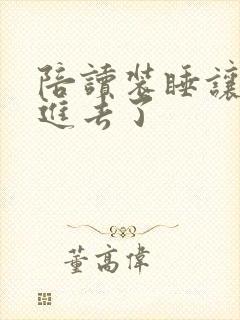 陪讀裝睡讓
進去了
董高偉